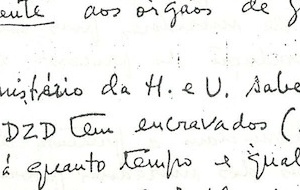 ente aos órgãos de
nistério da H. e U. sabe
DZD tem encravados (
á quanto tempo e qual